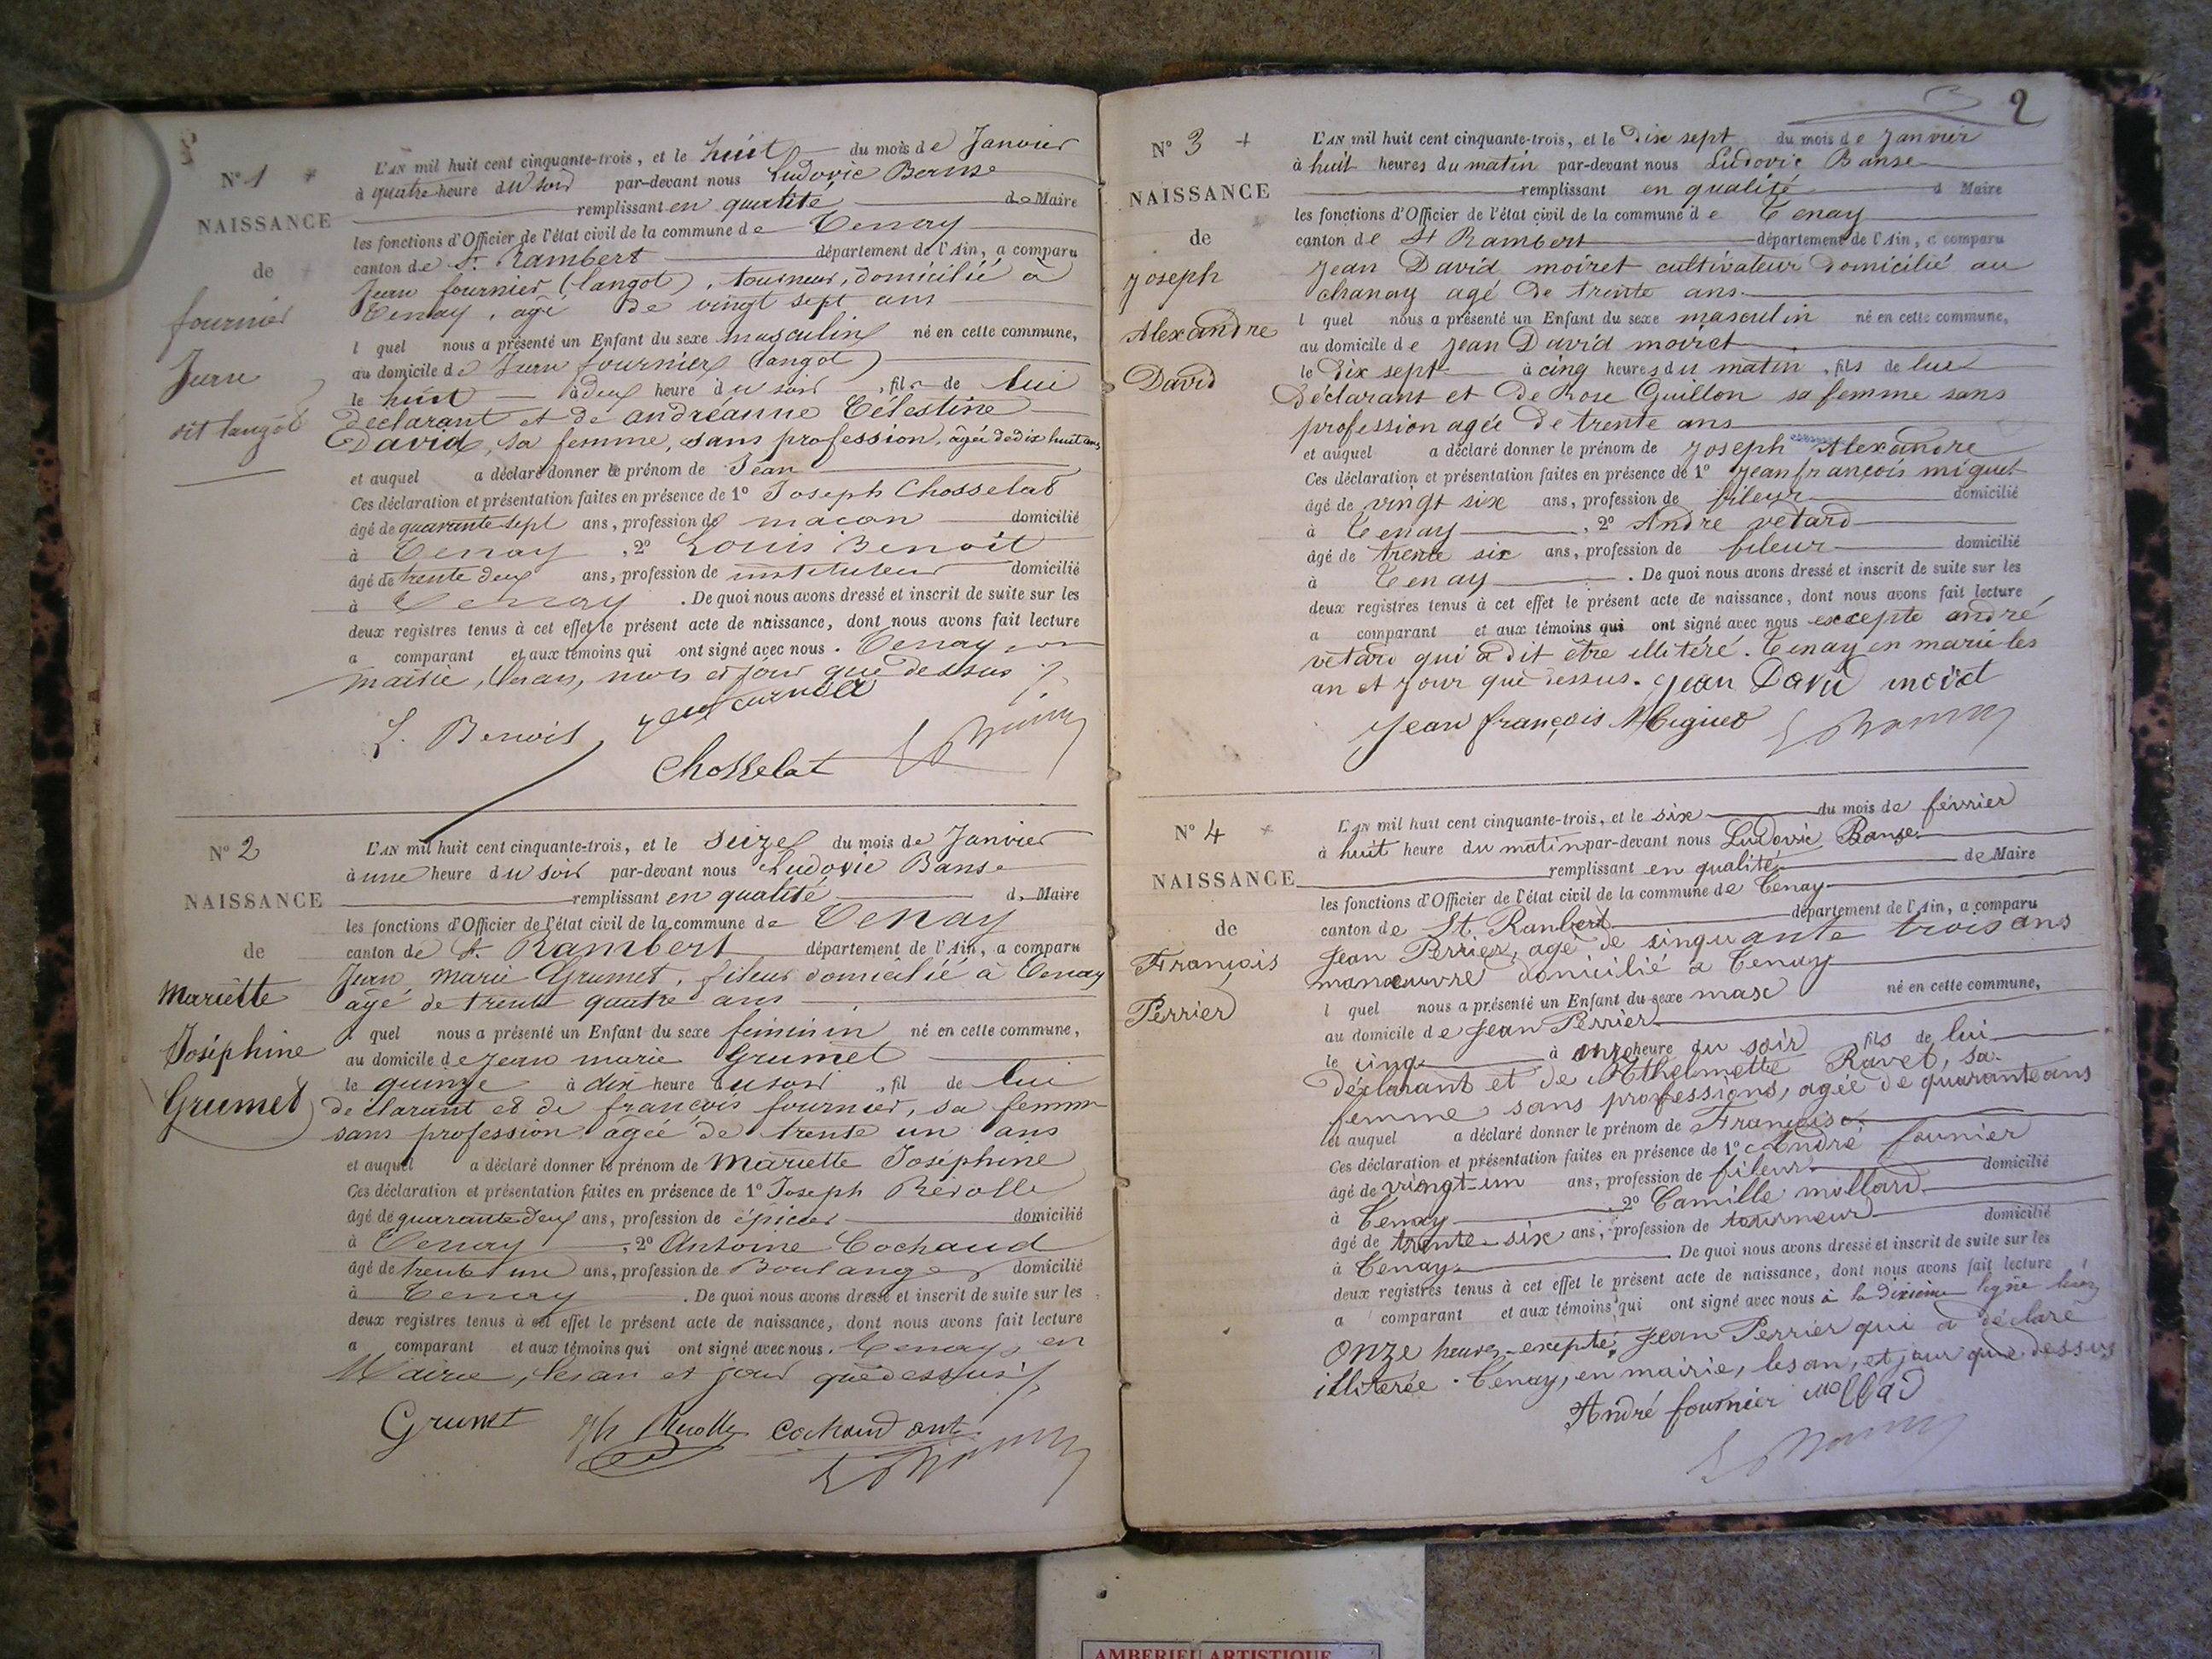 N° 1
NAISSANCE
de
fournier
Jean
dit langot
L'AN mil huit cent cinquante-trois, et le huit du mois de Janvier
à quatre heure du soir par-devant nous Ludovic Banse
remplissant en qualité de Maire
les fonctions d'Officier de l'état civil de la commune de Tenay
canton de St Rambert département de l'Ain, a comparu
Jean fournier (langot), tourneur, domicilié à
Tenay, agé de vingt sept ans
l quel nous a présenté un Enfant du sexe masculin né en cette commune,
au domicile de Jean fournier langot
le huit à deux heure du soir , fils de lui
déclarant et de andréanne Célestine
David, sa femme, sans profession, âgée de dix huit ans
et auquel a déclaré donner le prénom de Jean
Ces déclaration et présentation faites en présence de 1° Joseph Chosselat
âgé de quarante sept ans, profession de maçon domicilié
à Tenay , 2° Louis Benoit
âgé de trente deux ans, profession de instituteur domicilié
à Tenay . De quoi nous avons dressé et inscrit de suite sur les
deux registres tenus à cet effet le présent acte de naissance, dont nous avons fait lecture
a comparant et aux témoins qui ont signé avec nous. Tenay en
mairie, les an, mois et jour que dessus
L. Benoit jean fournier
Chosselat
N° 2
NAISSANCE
de
Mariette
Joséphine
Grumet
L'AN mil huit cent cinquante-trois, et le seize du mois de Janvier
à une heure du soir par-devant nous Ludovic Banse
remplissant en qualité de Maire
les fonctions d'Officier de l'état civil de la commune de Tenay
canton de St Rambert département de l'Ain, a comparu
Jean marie Grumet, fileur domicilié à Tenay
âgé de trente quatre ans
l quel nous a présenté un Enfant du sexe féminin né en cette commune,
au domicile de Jean marie Grumet
le quinze à dix heure du soir , fil de lui
déclarant et de françois fournier, sa femme
sans profession agée de trente un ans
et auquel a déclaré donner le prénom de Mariette Joséphine
Ces déclaration et présentation faites en présence de 1° Joseph Révolle
âgé de quarante deux ans, profession de épicier domicilié
à Tenay , 2° Antoine Cochaud
âgé de trente un ans, profession de Boulanger domicilié
à Tenay . De quoi nous avons dressé et inscrit de suite sur les
deux registres tenus à cet effet le présent acte de naissance, dont nous avons fait lecture
a comparant et aux témoins qui ont signé avec nous. Tenay, en
Mairie, les an et jour que dessus
Grumet cochaud ant
2
N° 3 +
NAISSANCE
de
Joseph
Alexandre
David
L'AN mil huit cent cinquante-trois, et le dix sept du mois de Janvier
à huit heures du matin par-devant nous Ludovic Banse
remplissant en qualité d Maire
les fonctions d'Officier de l'état civil de la commune de Tenay
canton de St Rambert département de l'Ain, a comparu
Jean David moiret cultivateur domicilié au
chanay agé de trente ans
l quel nous a présenté un Enfant du sexe masculin né en cette commune,
au domicile de Jean David moiret
le dix sept à cinq heures du matin , fils de lui
déclarant et de Rose Guillon sa femme sans
profession agée de trente ans
et auquel a déclaré donner le prénom de Joseph Alexandre
Ces déclaration et présentation faites en présence de 1° Jean françois miguet
âgé de vingt six ans, profession de fileur domicilié
à Tenay , 2° André vétard
âgé de trente six ans, profession de fileur domicilié
à Tenay . De quoi nous avons dressé et inscrit de suite sur les
deux registres tenus à cet effet le présent acte de naissance, dont nous avons fait lecture
a comparant et aux témoins qui ont signé avec nous excepté andré
vétard qui a dit être illitéré. Tenay en marie les
an et jour que dessus. Jean David moiret
Jean françois Miguet
N° 4
NAISSANCE
de
François
Perrier
L'AN mil huit cent cinquante-trois, et le six du mois de février
à huit heure du matin par-devant nous Ludovic Banse
remplissant en qualité de Maire
les fonctions d'Officier de l'état civil de la commune de Tenay
canton de St. Ranbert département de l'Ain, a comparu
Jean Perrier, agé de cinquante trois ans
manœuvre domicilié à Tenay
l quel nous a présenté un Enfant du sexe masc né en cette commune,
au domicile de Jean Perrier
le cinq à onze heure du soir fils de lui
déclarant et de Ravet, sa
femme sans professions, agée de quarante ans
et auquel a déclaré donner le prénom de François
Ces déclaration et présentation faites en présence de 1° André founier
âgé de vingt-un ans, profession de fileur domicilié
à Tenay , 2° Camille mollard
âgé de trente-six ans, profession de tourneur domicilié
à Tenay . De quoi nous avons dressé et inscrit de suite sur les
deux registres tenus à cet effet le présent acte de naissance, dont nous avons fait lecture
a comparant et aux témoins qui ont signé avec nous à la dixième ligne lisez
onze heures excepté Jean Perrier qui a déclaré
illiterée. Tenay, en mairie, les an, et jour que dessus
André fournier mollard
AMBERIEU ARTISTIQUE